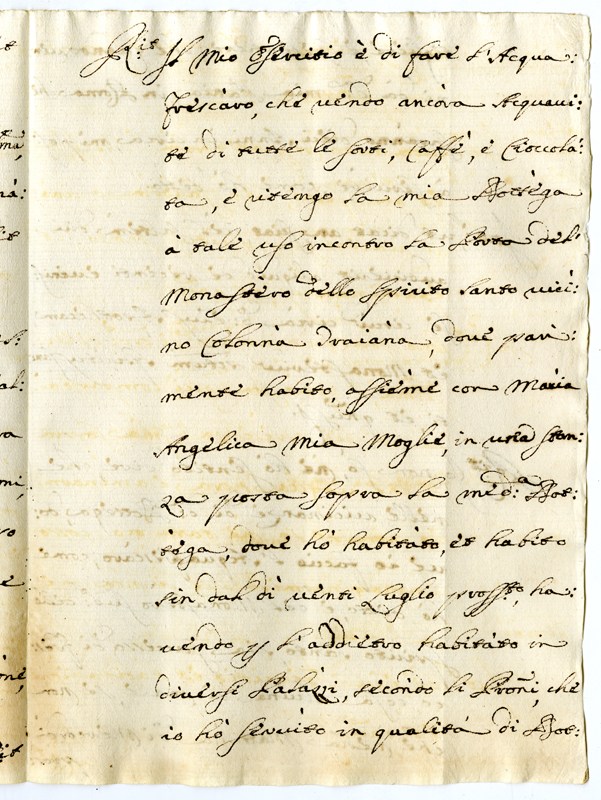 R.it Il mio Esercitio è di fare l'Acqua:
frescàro, che vendo ancòra Acquavi:
te di tutte le sorti, Caffè, e Cioccolà:
ta, e ritengo la mia Bottèga
à tale uso incontro la Porta del
Monastèro dello Spirito Santo vici:
no Colonna Traiàna, dove pari:
mente habito, assième con Marìa
Angelica mia Moglie, in una stan:
za posta sopra la med:a Bot:
tèga, dove hò habitàto, et habito
sin dal dì venti Luglio pross.o, ha:
vendo p l'addietro habitàto in
diversi Palàzzi, secondo li Proñi, che
io hò servito in qualità di Bot: